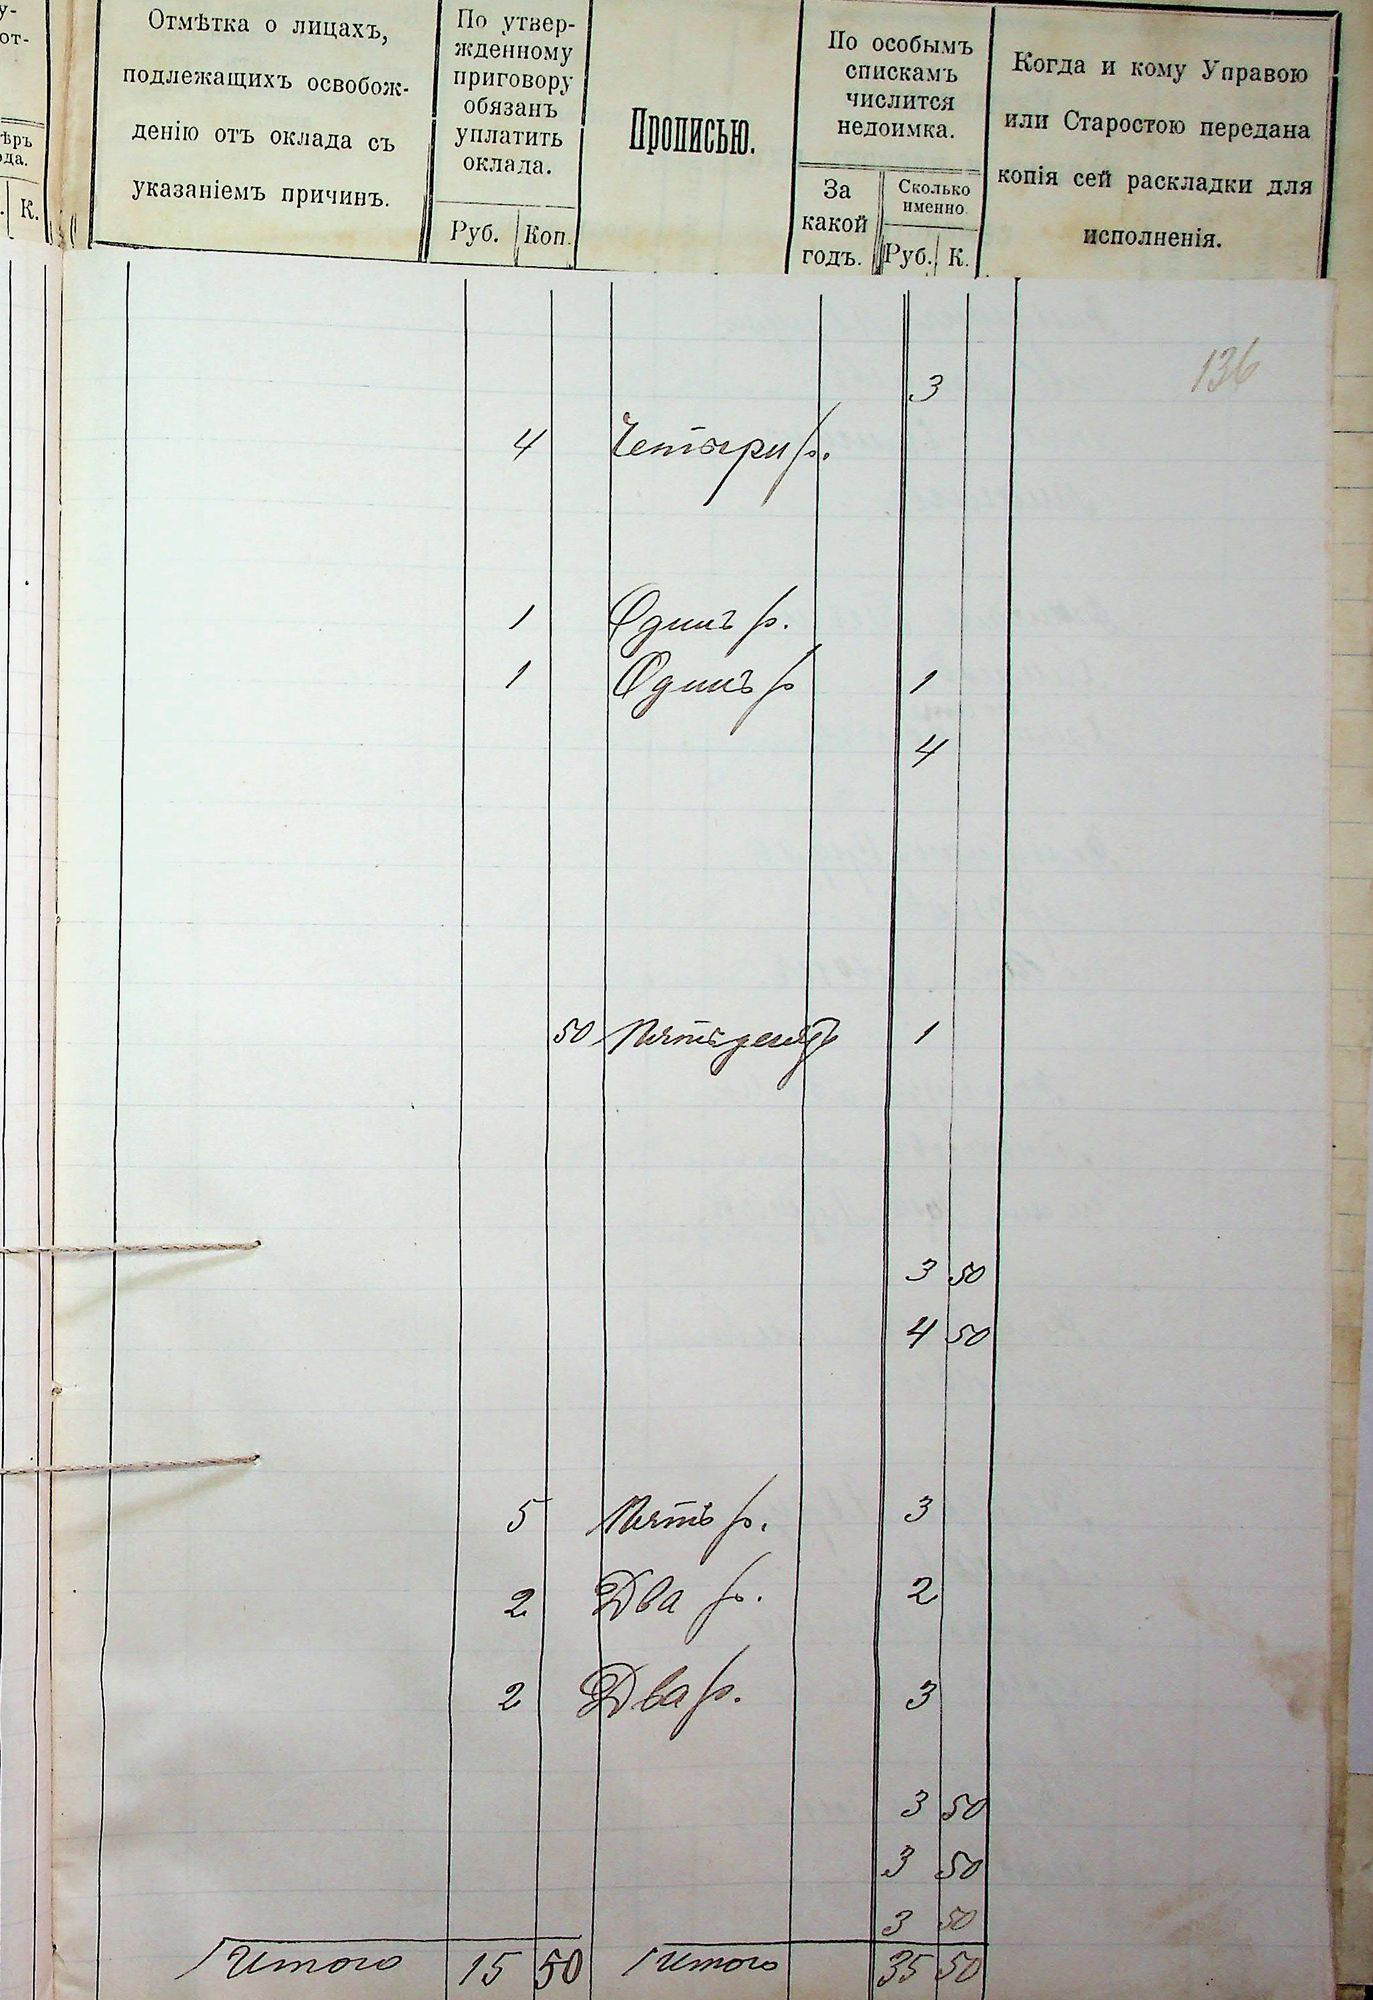 у-
от-
ѣръ
ода.
К.
Отмѣтка о лицахъ,
подлежащихъ освобож-
денію отъ оклада съ
указаніемъ причинъ.
По утвер-
жденному
приговору
обязанъ
уплатить
оклада.
Руб. Коп.
Прописью.
По особымъ
спискамъ
числится
недоимка.
За
какой
годъ.
Сколько
именно
Руб. К.
Когда и кому Управою
или Старостою передана
копія сей раскладки для
исполненія.
136
3
4 Четыри р.
1 Одинъ р.
1 Одинъ р 1
4
50 Пятьдеся 1
3 50
4 50
5 Пять р. 3
2 Два р. 2
2 Два р. 3
3 50
3 50
3 50
Итого 15 50 Итого 35 50